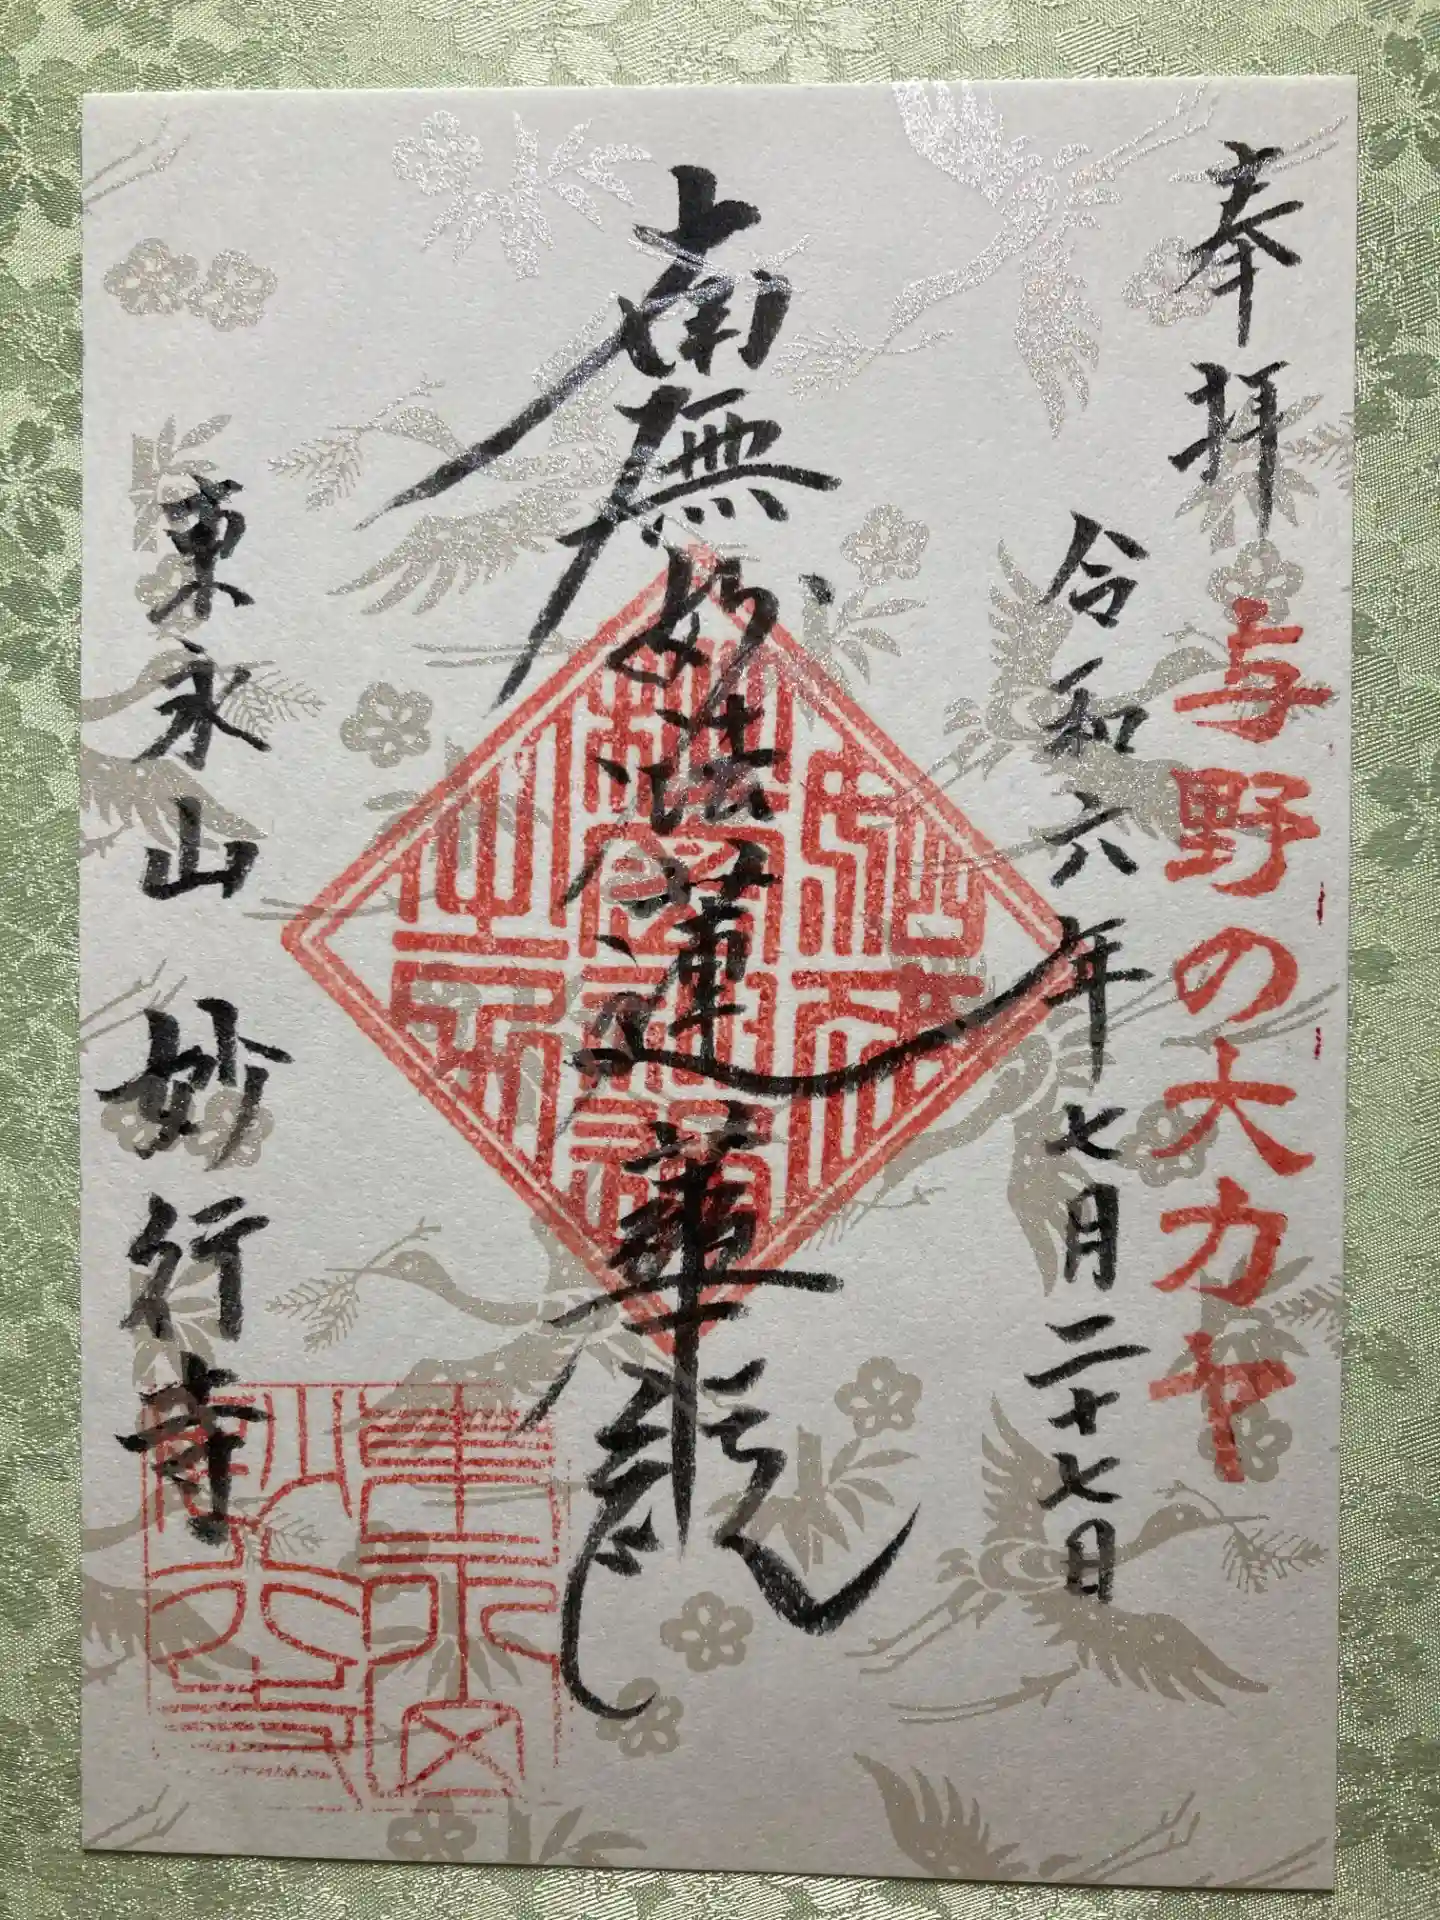 奉拝
与野の大カヤ
令和六年七月二十七日
南無妙法蓮華経
東永山 妙行寺